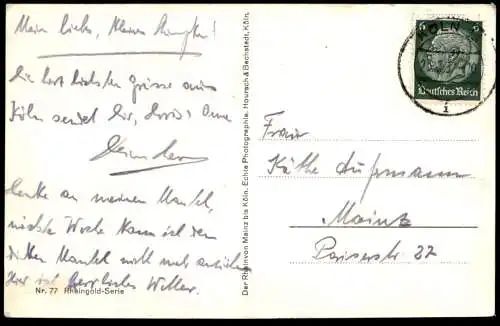 Mein liebes, kleines
Die herzlichsten Grüsse aus
Köln sendet Dir,
Denke an meinen Mantel,
nächste Woche kann ich den
dicken Mantel nicht mehr anziehen
Hier ist herrliches Wetter.
Nr. 77 Rheingold-Serie
Der Rhein von Mainz bis Köln. Echte Photographie. Hoursch & Bechstedt, Köln.
KÖLN
Deutsches Reich
1
Frau
Käthe
Mainz
Pariserstr. 22